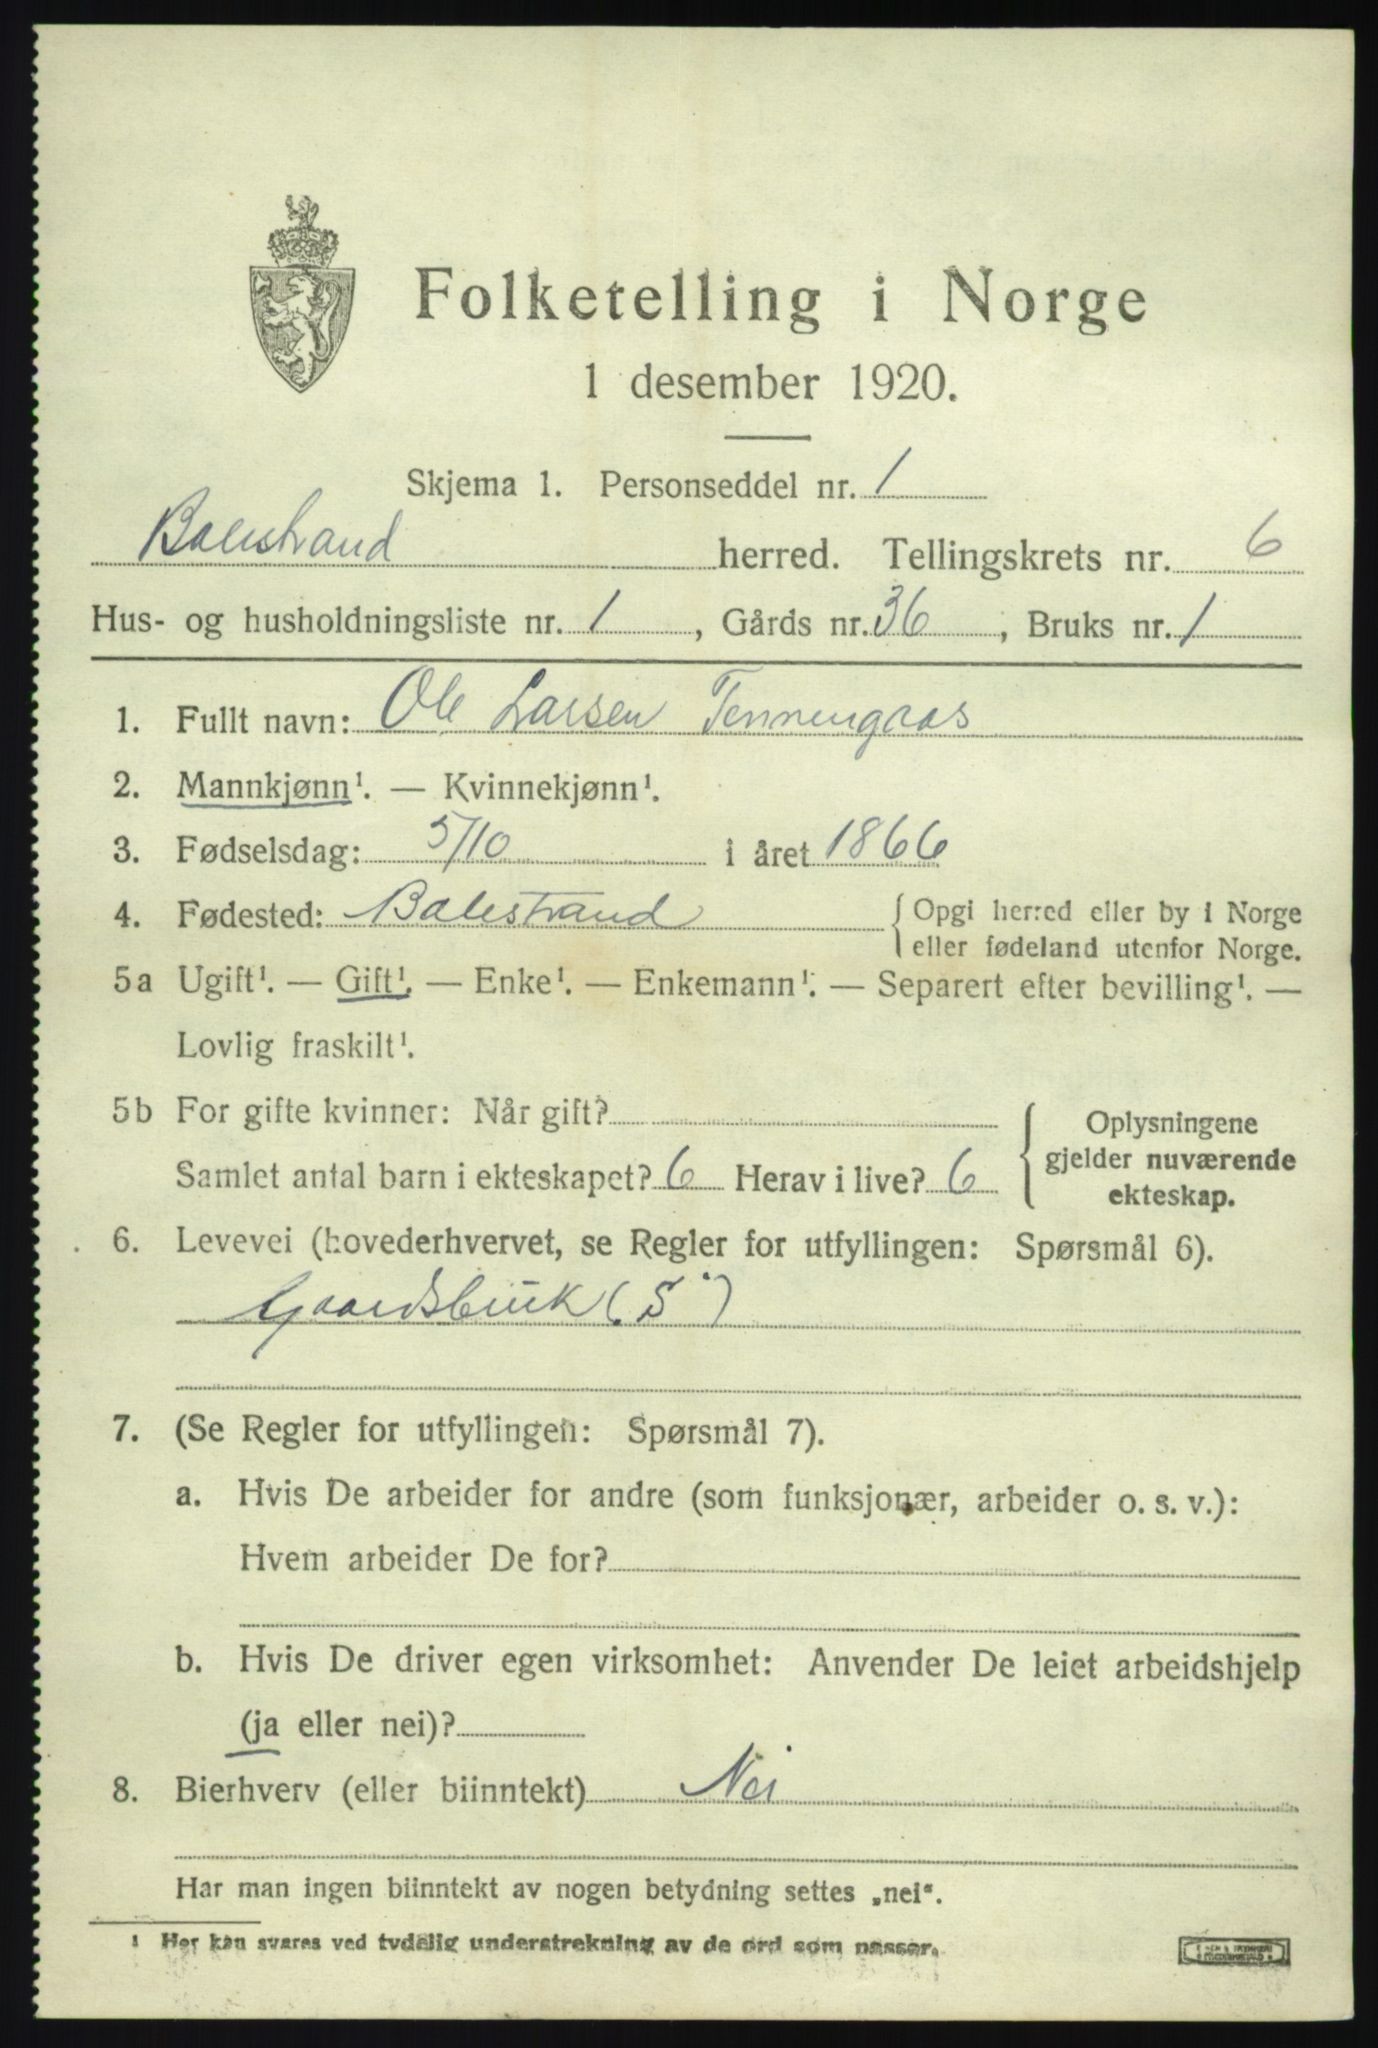 Folketelling i Norge
1 desember 1920.
Skjema 1. Personseddel nr. 1
Balestrand herred. Tellingskrets nr. 6
Hus- og husholdningsliste nr. 1, Gårds nr. 36, Bruks nr. 1
1. Fullt navn: Ole Larsen Tennengras
2. Mannkjønn¹. — Kvinnekjønn¹.
3. Fødselsdag: 5/10 i året 1866
4. Fødested: Balestrand { Opgi herred eller by i Norge
eller fødeland utenfor Norge.
5a Ugift¹. — Gift¹. — Enke¹. — Enkemann¹. — Separert efter bevilling¹. —
Lovlig fraskilt¹.
5b For gifte kvinner: Når gift?
Samlet antal barn i ekteskapet? 6 Herav i live? 6
{ Oplysningene
gjelder nuværende
ekteskap.
6. Levevei (hovederhvervet, se Regler for utfyllingen: Spørsmål 6).
Gaardsbruk (S)
7. (Se Regler for utfyllingen: Spørsmål 7).
a. Hvis De arbeider for andre (som funksjonær, arbeider o. s. v.):
Hvem arbeider De for?
b. Hvis De driver egen virksomhet: Anvender De leiet arbeidshjelp
(ja eller nei)?
8. Bierhverv (eller biinntekt) Nei
Har man ingen biinntekt av nogen betydning settes „nei“.
¹ Her kan svares ved tydelig understrekning av de ord som passer.